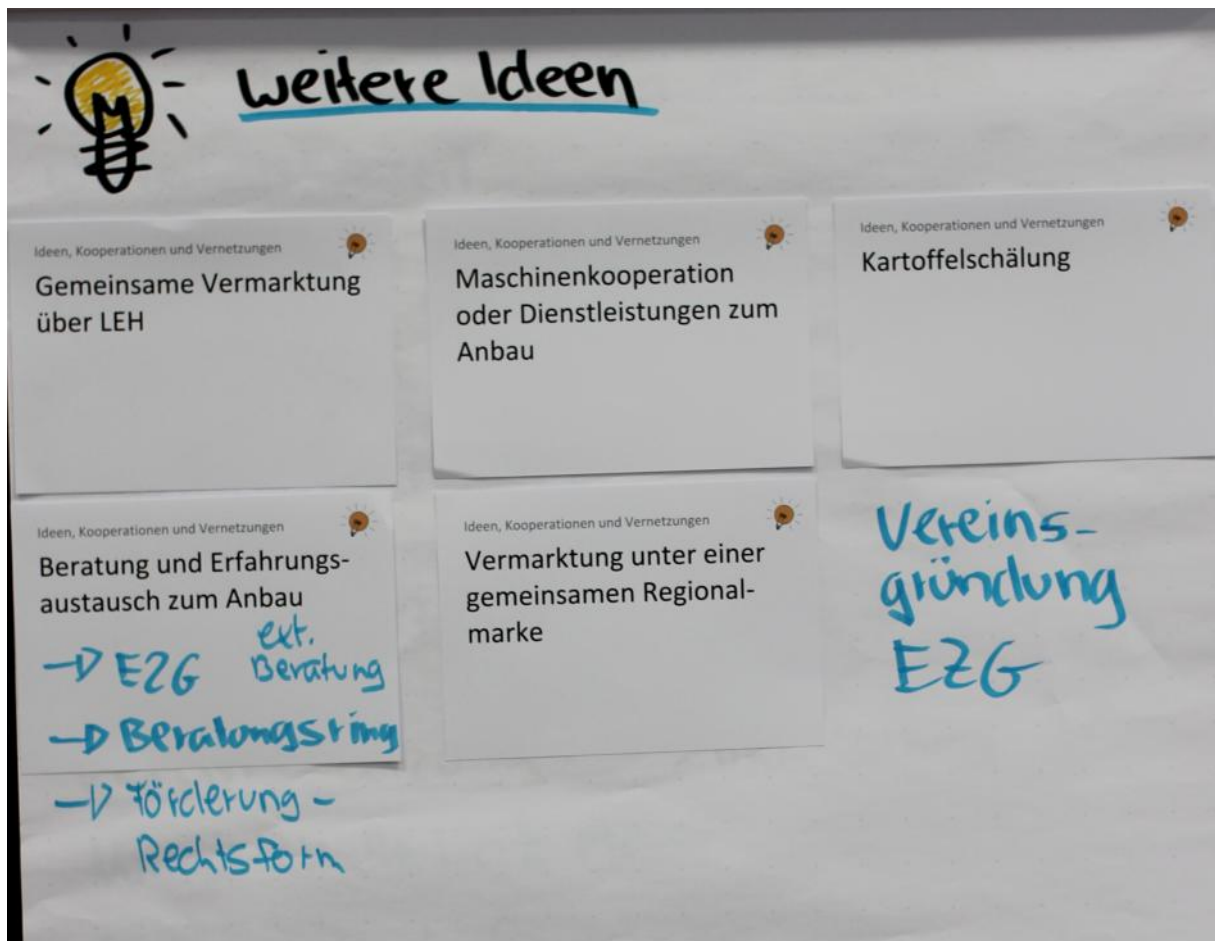 weitere Ideen
Ideen, Kooperationen und Vernetzungen
Gemeinsame Vermarktung
über LEH
Ideen, Kooperationen und Vernetzungen
Maschinenkooperation
oder Dienstleistungen zum
Anbau
Ideen, Kooperationen und Vernetzungen
Kartoffelschälung
Ideen, Kooperationen und Vernetzungen
Beratung und Erfahrungs-
austausch zum Anbau
→ EZG
ext.
Beratung
→ Beratungsring
→ Förderung -
Rechtsform
Ideen, Kooperationen und Vernetzungen
Vermarktung unter einer
gemeinsamen Regional-
marke
Vereins-
gründung
EZG